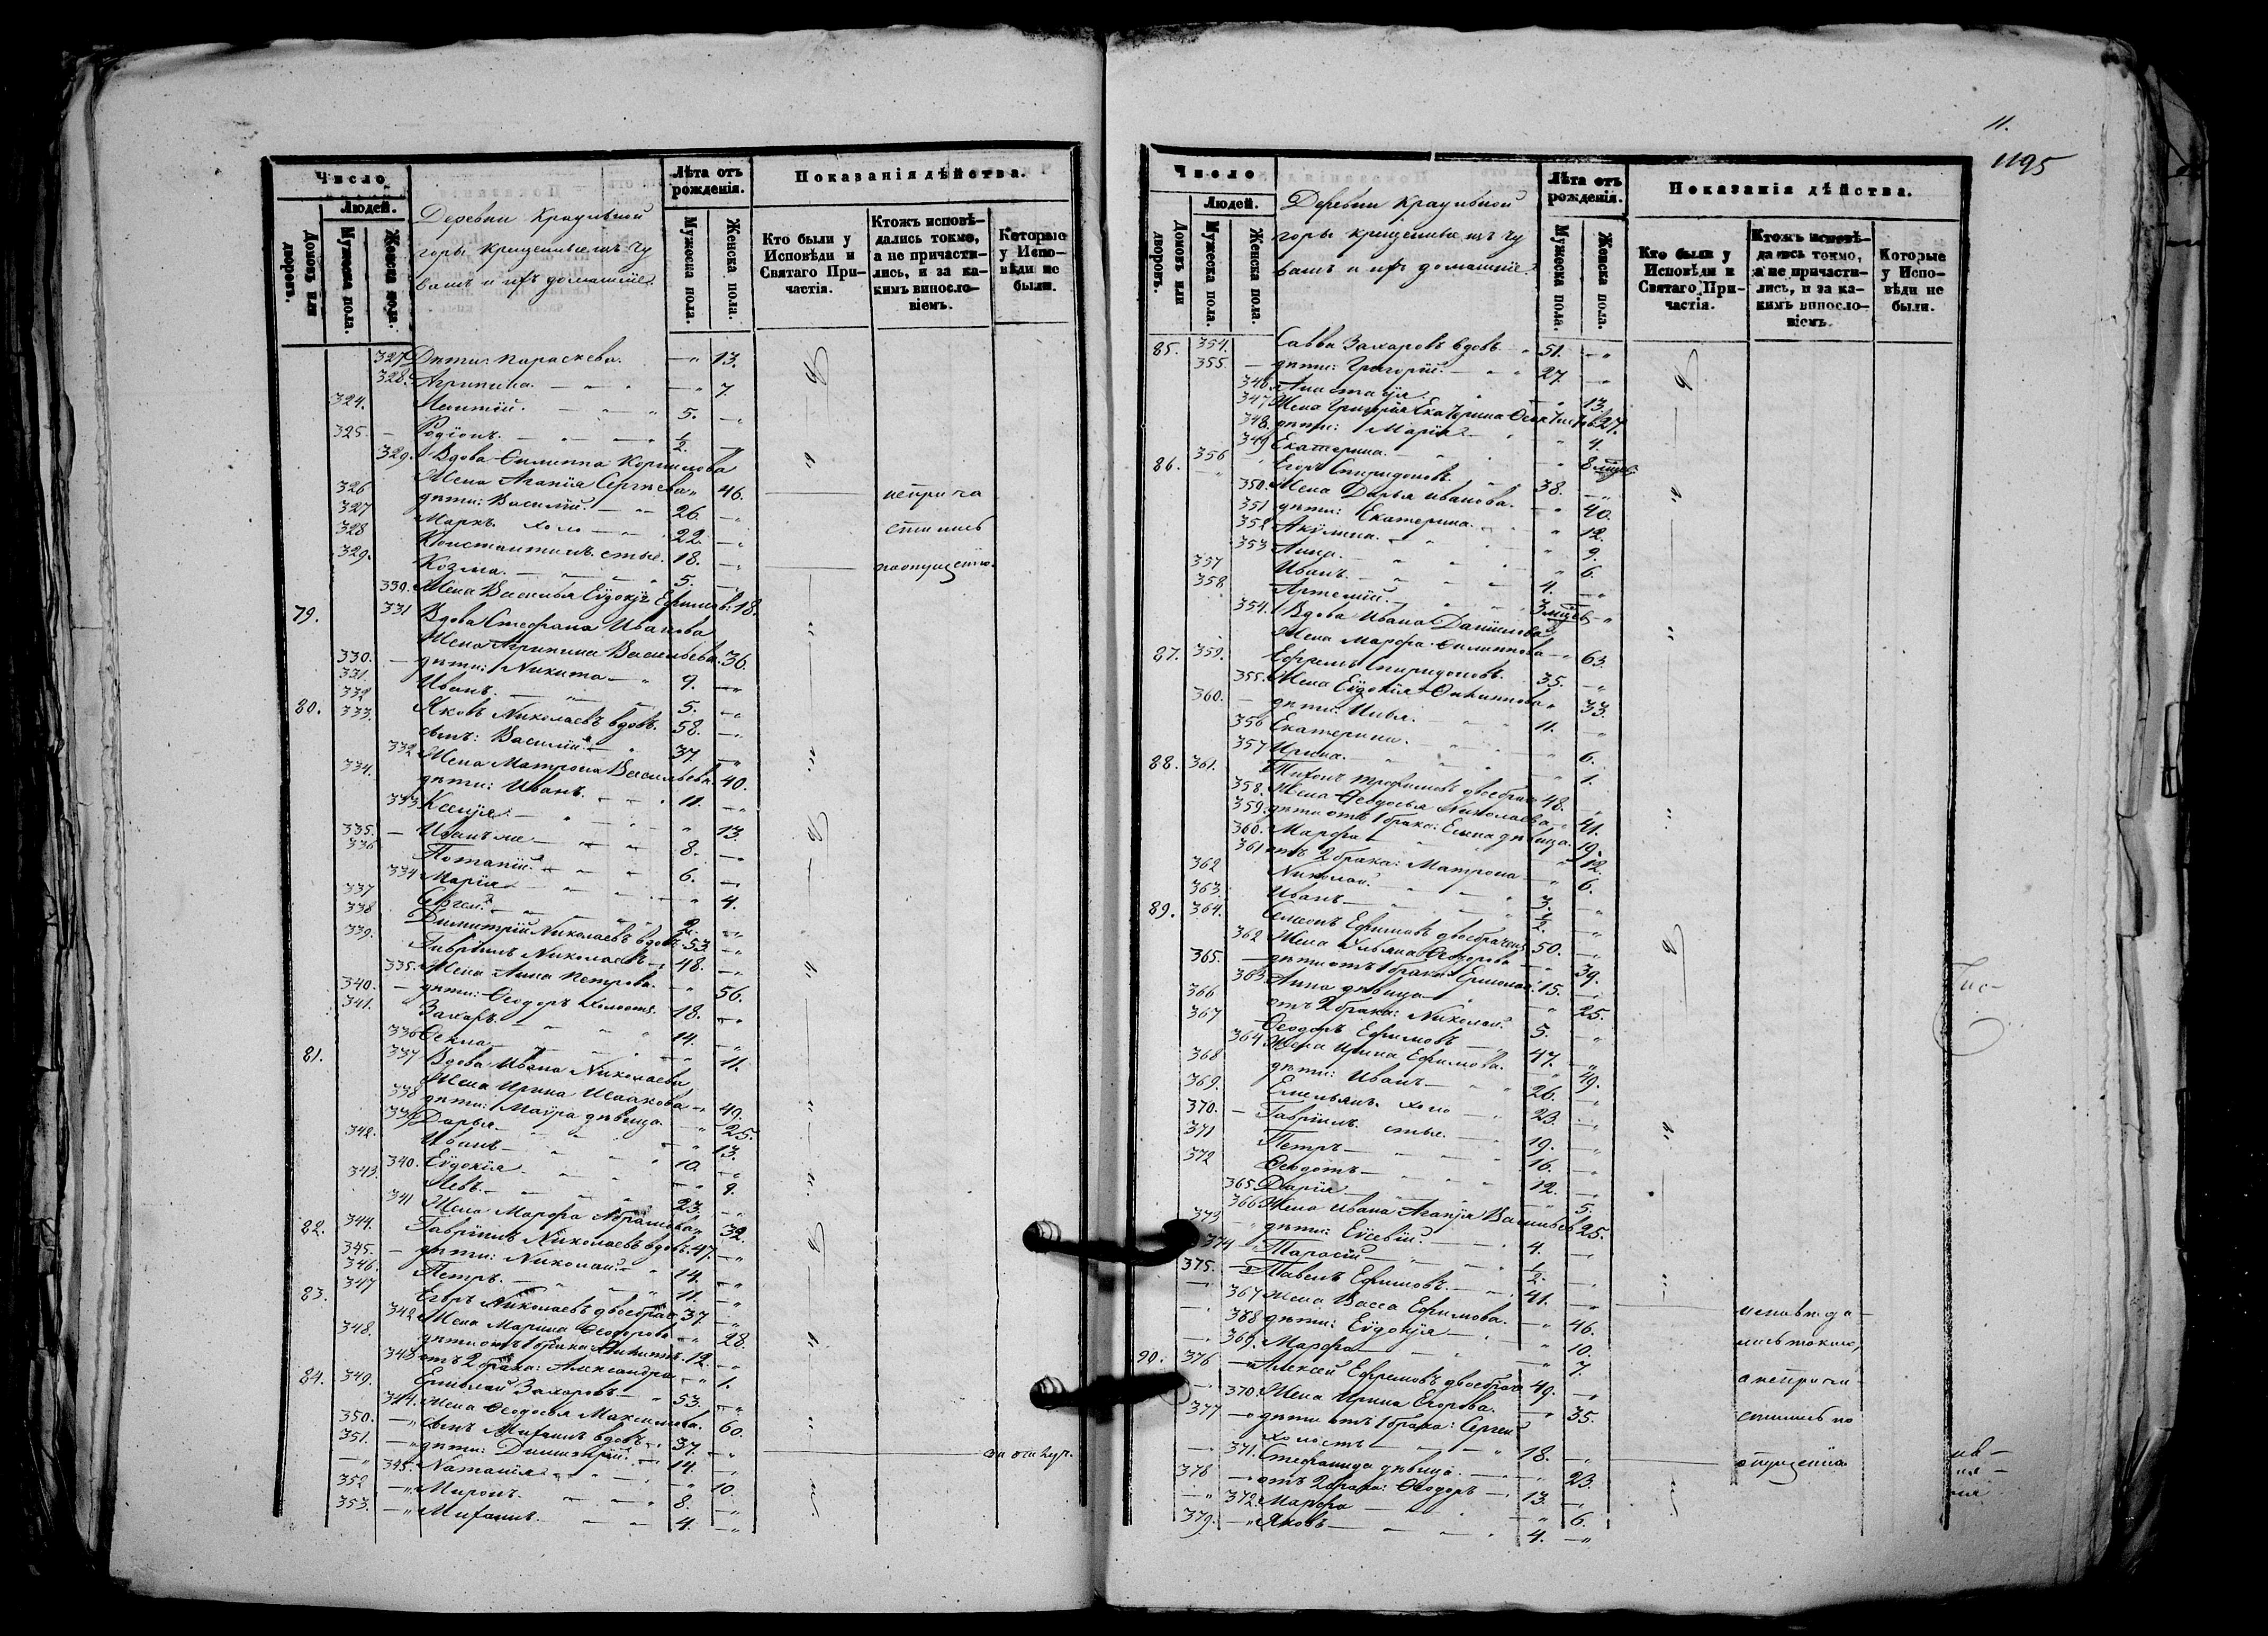 11.
1195
Число
Людей.
Домовъ или дворовъ.
Мужеска пола.
Женска пола.
Деревни Краульной
горы крещенные изъ чу
вашъ и ихъ домашние
Лѣта отъ рожденія.
Мужеска пола.
Женска пола.
Показанія дѣйства.
Кто были у Исповѣди и Святаго Причастія.
Ктожъ исповѣдались токмо, а не причастились, и за какимъ винословіемъ.
Которые у Исповѣди не были.
327. Дѣти: Параскева. — 13.
328. Агрипина. — 7.
324. 5. —
325. — Родіонъ. — ½. —
329. Вдова Филиппа
Жена Агапія Сергѣева 46. неприча
326 дѣти: Василій. — 26. —
327 Маркъ холо — 22. — стились
328 Константинъ стые. 18. —
329. Козма. — 5. — поопущенію.
330. Жена Василья Евдокія Ефимов: 18.
79. 331 Вдова Стефана Иванова
Жена Агрипина Васильева. 36.
330. — дѣти: Никита — 9. —
331. Иванъ. — 5. —
80. 332 Яковъ Николаевъ вдовъ. 58. —
333. сынъ: Василій. — 37. —
332 Жена Матрона Васильева. 40.
334. дѣти: Иванъ. — 11. —
333 Ксенія. — 13.
335. — Иванъ же — 8. —
336 Потапій. — 6. —
334 Марія — 4.
337 Сергей. — 2. —
338 Димитрій Николаевъ вдовъ 53. —
339. Гавріилъ Николаевъ — 48. —
335. Жена Анна Петрова. — 56.
340. — дѣти: Ѳеодоръ холостъ. 18. —
341. Захаръ. — 14. —
336 Ѳекла — 11.
81. 337 Вдова Ивана Николаева
Жена Ирина Исаакова — 49.
338 дѣти: Мавра дѣвица — 25.
339 Дарья — 13.
342. Иванъ — 10. —
340. Евдокія — 9.
343. Левъ. — 23. —
341 Жена Марфа Абрамова 32.
82. 344. Гавріилъ Николаевъ вдовъ. 47. —
345. — дѣти: Николай. — 14. —
346. Петръ. — 11. —
83. 347 Егоръ Николаевъ двоебрач. 37. —
342 Жена Марина Ѳеодорова — 28.
348. дѣти отъ 1 брака: 12. —
343 отъ 2 брака: Александра — 1.
84. 349. Ермолай Захаровъ — 53. —
344. Жена Ѳеодосья Максимова. 60.
350. — сынъ Михаилъ вдовъ — 37. —
351. — дѣти: Димитрій. — 14. — за отлуч.
345. Наталія — 10.
352 — Миронъ. — 8. —
353. — Михаилъ. — 4. —
Число
Людей.
Домовъ или дворовъ.
Мужеска пола.
Женска пола.
Деревни Краульной
горы крещенные изъ чу
вашъ и ихъ домашние
Лѣта отъ рожденія.
Мужеска пола.
Женска пола.
Показанія дѣйства.
Кто были у Исповѣди и Святаго Причастія.
Ктожъ исповѣдались токмо, а не причастились, и за какимъ винословіемъ.
Которые у Исповѣди не были.
85. 354. Савва Захаровъ вдовъ — 51. —
355. — дѣти: Григорій. — 27. —
346 Анастасія. — 13.
347 Жена Григорія Екатерина 27.
348. дѣти: Марія — 4.
349 Екатерина. — 8 мѣсяц.
86. 356 Егоръ Спиридоновъ. 38. —
350. Жена Дарья Иванова. — 40.
351 дѣти: Екатерина. — 12.
352 Акулина. — 9.
353 Анна. — 6.
357 Иванъ. — 4. —
358. Артемій. — 3 мѣсяц. —
354. Вдова Ивана Данилова
Жена Марфа Филиппова — 63.
87. 359. Ефремъ Спиридоновъ. 35. —
355. Жена Евдокія Филиппова 33.
360. — дѣти: Илья. — 11. —
356 Екатерина. — 6.
357 Ирина. — 1.
88. 361. Тихонъ Трофимовъ двоебрач 48. —
358. Жена Ѳеодосья Николаева — 41.
359. дѣти отъ 1 брака: Елена дѣвица. 19.
360. Марфа — 12.
361 отъ 2 брака: Матрона — 6.
362 Николай. — 3. —
363. Иванъ — ½. —
89. 364. Семенъ Ефимовъ двоебрачень 50. —
362 Жена Ульяна Ѳеодорова — 39.
365. — дѣти отъ 1 брака: Ермолай. 15. —
363 Анна дѣвица — 25.
366 отъ 2 брака: Николай. 5. —
367 Ѳеодоръ Ефимовъ — 47. —
364 Жена Ирина Ефимова. — 49.
368 дѣти: Иванъ — 26. —
369. Емельянъ холо — 23. —
370. — Гавріилъ стые. — 19. —
371 Петръ — 16. —
372 Ѳеодотъ — 12. —
365 Дарія — 5.
366 Жена Ивана Агапія Васильев 25.
373 дѣти: Евсевій. — 4. —
374 Тарасій — ½. —
375. — Павелъ Ефимовъ. — 41. —
367 Жена Васса Ефимова. — 46. исповѣда-
368 дѣти: Евдокія — 10. лись токмо,
369. Марфа — 7.
90. 376 — Алексей Ефремовъ двоебрач 49. — а неприча-
370. Жена Ирина Егорова. — 35. стились по
377 — дѣти отъ 1 брака: Сергей
холостъ — 18. — опущенію
371. Стефанида дѣвица. — 23.
378 — отъ 2 брака: Ѳеодоръ — 13. —
372. Марфа — 6.
379. — Яковъ — 4. —